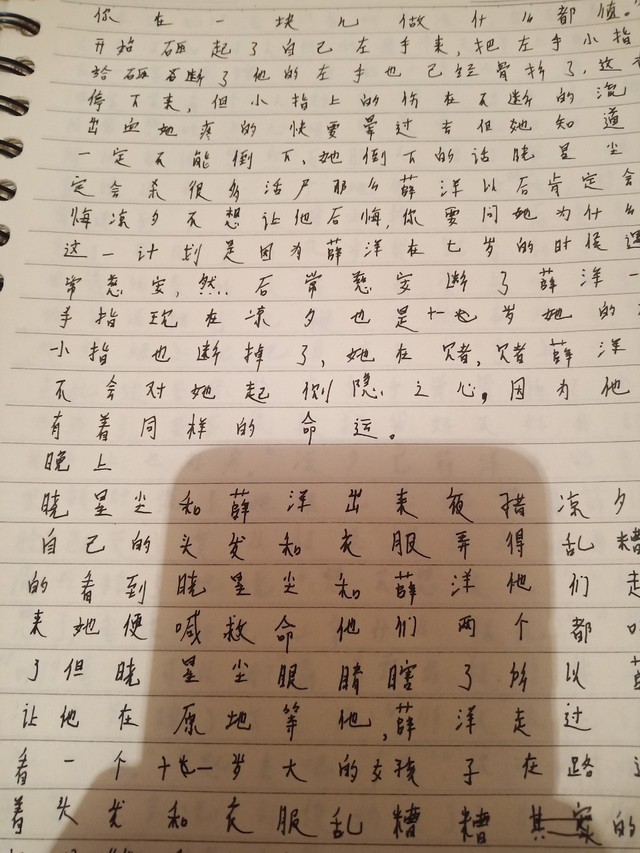 你在一块儿做什么都值。
开始砸起了自己左手来,把左手小指
给砸砸断了他的左手也已经骨折了,这
停不来,但小指上的伤在不断的流
出血她疼的快要晕过去但她知道
一定不能倒下,她倒下的话晓星尘
定会杀很多活尸那么薛洋以后肯定会
悔凉夕不想让他后悔,你要问她为什么
这一计划是因为薛洋在七岁的时候遇
常慈安,然后常慈安断了薛洋一
手指现在凉夕也是十岁她的
小指也断掉了,她在赌,赌薛洋
不会对她起恻隐之心。因为他
有着同样的命运。
晚上
晓星尘和薛洋出来夜猎凉夕
自己的头发和衣服弄得乱糟
的看到晓星尘和薛洋他们走
来她便喊救命他们两个都听
了但晓星尘眼睛瞎了所以薛
让他在原地等他,薛洋走过
看一个十一岁大的女孩子在路
着头发和衣服乱糟糟的